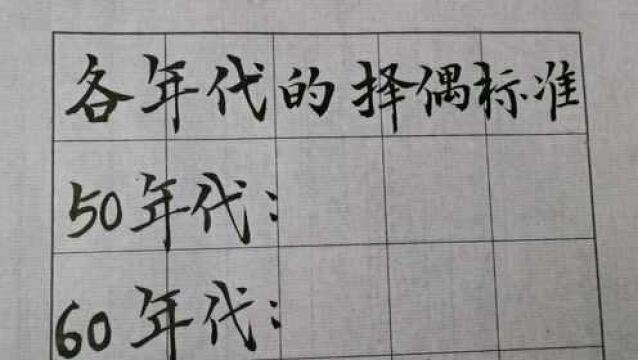 各年代的择偶标准
50年代:
60年代: